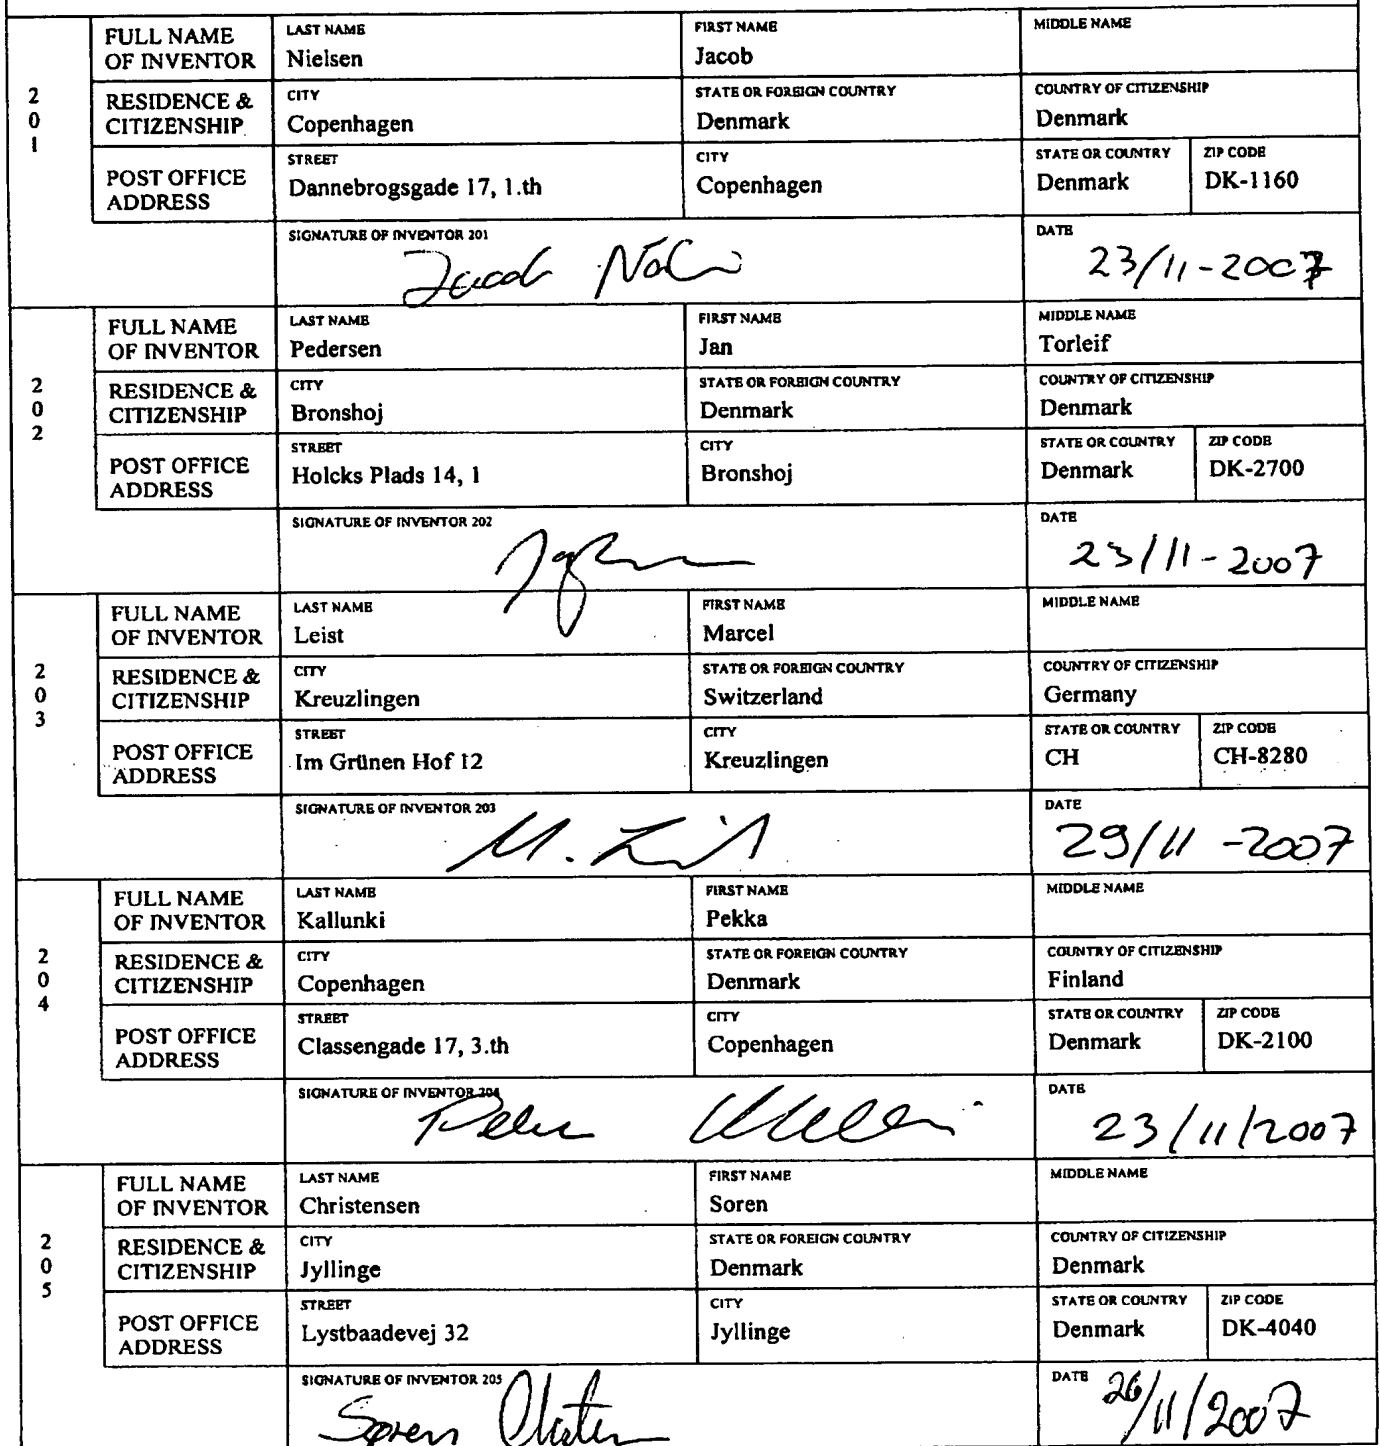 FULL NAME OF INVENTOR
LAST NAME
Nielsen
FIRST NAME
Jacob
MIDDLE NAME
201
RESIDENCE & CITIZENSHIP
CITY
Copenhagen
STATE OR FOREIGN COUNTRY
Denmark
COUNTRY OF CITIZENSHIP
Denmark
POST OFFICE ADDRESS
STREET
Dannebrogsgade 17, 1.th
CITY
Copenhagen
STATE OR COUNTRY
Denmark
ZIP CODE
DK-1160
SIGNATURE OF INVENTOR 201
DATE
23/11-2007
FULL NAME OF INVENTOR
LAST NAME
Pedersen
FIRST NAME
Jan
MIDDLE NAME
Torleif
202
RESIDENCE & CITIZENSHIP
CITY
Bronshoj
STATE OR FOREIGN COUNTRY
Denmark
COUNTRY OF CITIZENSHIP
Denmark
POST OFFICE ADDRESS
STREET
Holcks Plads 14, 1
CITY
Bronshoj
STATE OR COUNTRY
Denmark
ZIP CODE
DK-2700
SIGNATURE OF INVENTOR 202
DATE
23/11-2007
FULL NAME OF INVENTOR
LAST NAME
Leist
FIRST NAME
Marcel
MIDDLE NAME
203
RESIDENCE & CITIZENSHIP
CITY
Kreuzlingen
STATE OR FOREIGN COUNTRY
Switzerland
COUNTRY OF CITIZENSHIP
Germany
POST OFFICE ADDRESS
STREET
Im Grünen Hof 12
CITY
Kreuzlingen
STATE OR COUNTRY
CH
ZIP CODE
CH-8280
SIGNATURE OF INVENTOR 203
M.
DATE
29/11-2007
FULL NAME OF INVENTOR
LAST NAME
Kallunki
FIRST NAME
Pekka
MIDDLE NAME
204
RESIDENCE & CITIZENSHIP
CITY
Copenhagen
STATE OR FOREIGN COUNTRY
Denmark
COUNTRY OF CITIZENSHIP
Finland
POST OFFICE ADDRESS
STREET
Classengade 17, 3.th
CITY
Copenhagen
STATE OR COUNTRY
Denmark
ZIP CODE
DK-2100
SIGNATURE OF INVENTOR 204
DATE
23/11/2007
FULL NAME OF INVENTOR
LAST NAME
Christensen
FIRST NAME
Soren
MIDDLE NAME
205
RESIDENCE & CITIZENSHIP
CITY
Jyllinge
STATE OR FOREIGN COUNTRY
Denmark
COUNTRY OF CITIZENSHIP
Denmark
POST OFFICE ADDRESS
STREET
Lystbaadevej 32
CITY
Jyllinge
STATE OR COUNTRY
Denmark
ZIP CODE
DK-4040
SIGNATURE OF INVENTOR 205
Søren
DATE
26/11/2007